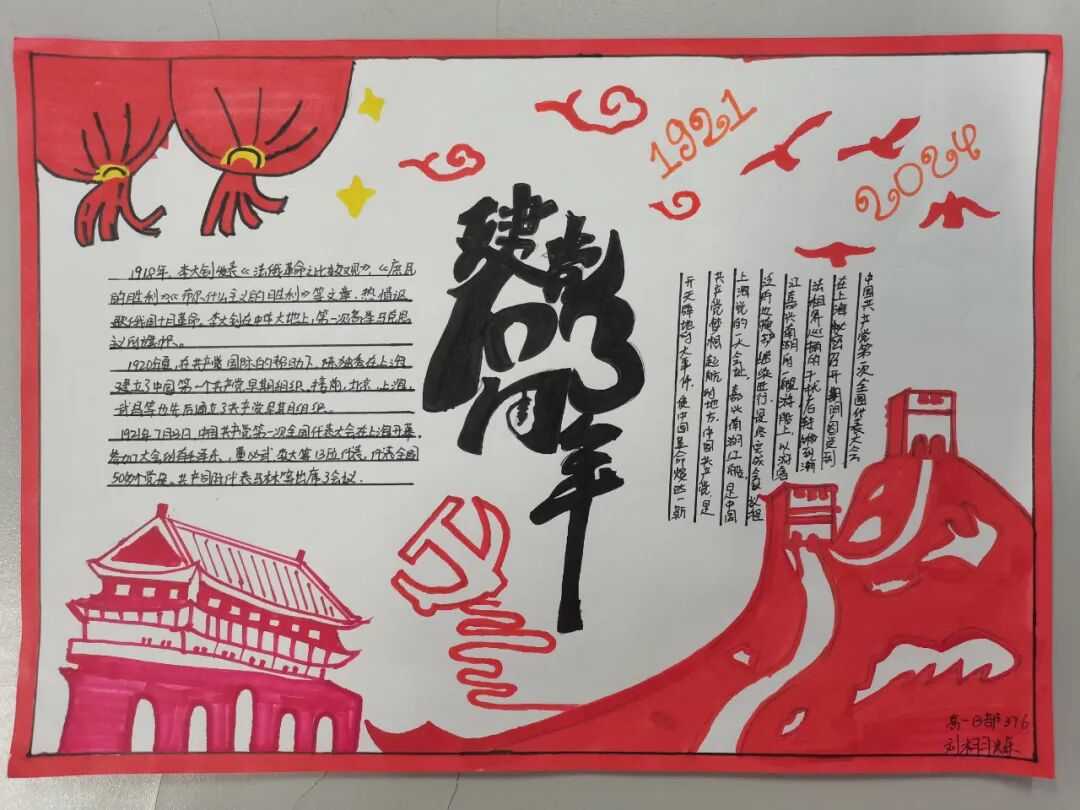 1921
2024
建党
百周年
1918年，李大钊发表《法俄革命之比较观》、《庶民
的胜利》《布尔什么主义的胜利》等文章，热情讴
歌俄国十月革命。李大钊在中华大地上，第一次高举马克思
主义的旗帜。
1920年，在共产党国际的帮助下，陈独秀在上海
建立了中国第一个共产党早期组织。接着，北京、上海、
武昌等也先后成立了共产党早期组织。
1921年7月23日，中国共产党第一次全国代表大会在上海开幕。
参加大会的有毛泽东、董必武、李大等13位代表，代表全国
50多个党员。共产国际代表马林等出席了会议。
中国共产党第一次全国代表大会
在上海秘密召开期间因受到
法租界巡捕的干扰后转移到浙
江嘉兴南湖的一艘游船上以游客
泛舟为掩护继续进行，最终完成会议议程
上海党的一大会址，嘉兴南湖红船，是中国
共产党梦想起航的地方。中国共产党是
开天辟地的大事件，使中国革命焕然一新
高一B部376
刘栩